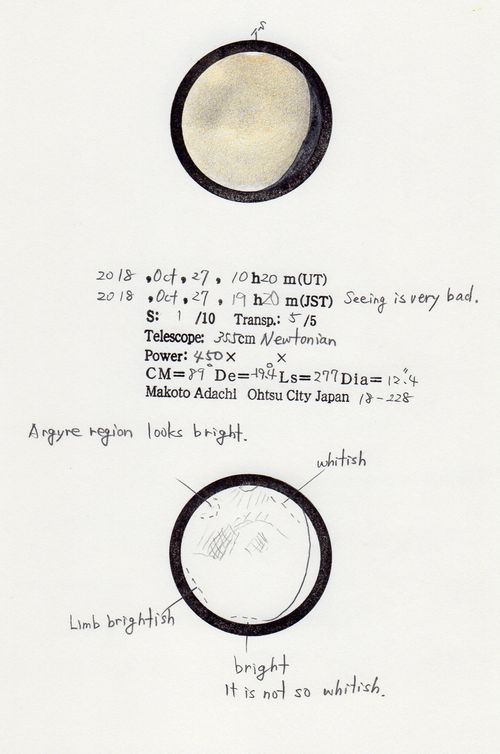 S
2018 , Oct , 27 , 10 h20 m(UT)
2018 , Oct , 27 , 19 h20 m(JST) Seeing is very bad.
S: 1 /10 Transp.: 5 /5
Telescope: 355cm Newtonian
Power: 450× ×
CM=89° De=-19.4° Ls=277 Dia= 12".4
Makoto Adachi Ohtsu City Japan 18-228
Argyre region looks bright.
whitish
Limb brightish
bright
It is not so whitish.